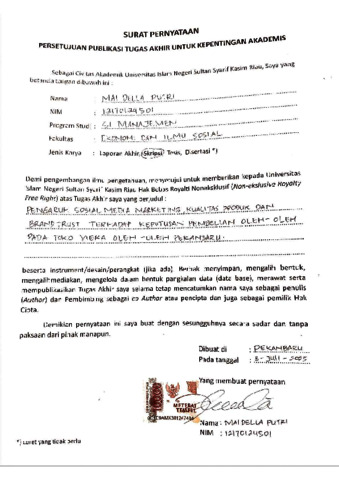 SURAT PERNYATAAN
PERSETUJUAN PUBLIKASI TUGAS AKHIR UNTUK KEPENTINGAN AKADEMIS
Sebagai Civitas Akademis Universitas Islam Negeri Sultan Syarif Kasim Riau, Saya yang
bertanda tangan dibawah ini :
Nama : MAI DELLA PUTRI
NIM : 12170124501
Program Studi : S1 MANAJEMEN
Fakultas : EKONOMI DAN ILMU SOSIAL
Jenis Karya : Laporan Akhir, Skripsi, Tesis, Disertasi *)
Demi pengembangan ilmu pengetahuan, menyetujui untuk memberikan kepada Universitas
Islam Negeri Sultan Syarif Kasim Riau, Hak Bebas Royalti Noneksklusif (Non-eksklusive Royalty
Free Right) atas Tugas Akhir saya yang berjudul :
PENGARUH SOSIAL MEDIA MARKETING KUALITAS PRODUK DAN
BRAND TRUST TERHADAP KEPUTUSAN PEMBELIAN OLEH-OLEH
PADA TOKO VIERA OLEH-OLEH PEKANBARU
beserta instrument/desain/perangkat (jika ada). Berhak menyimpan, mengalih bentuk,
mengalihmediakan, mengelola dalam bentuk pangkalan data (data base), merawat serta
mempublikasikan Tugas Akhir saya selama tetap mencatumkan nama saya sebagai penulis
(Author) dan Pembimbing sebagai co Author atau pencipta dan juga sebagai pemilik Hak
Cipta.
Demikian pernyataan ini saya buat dengan sesungguhnya secara sadar dan tanpa
paksaan dari pihak manapun.
Dibuat di : PEKANBARU
Pada tanggal : 8-JULI-2025
Yang membuat pernyataan
METERAI
TEMPEL
Nama : MAI DELLA PUTRI
NIM : 12170124501
*) coret yang tidak perlu